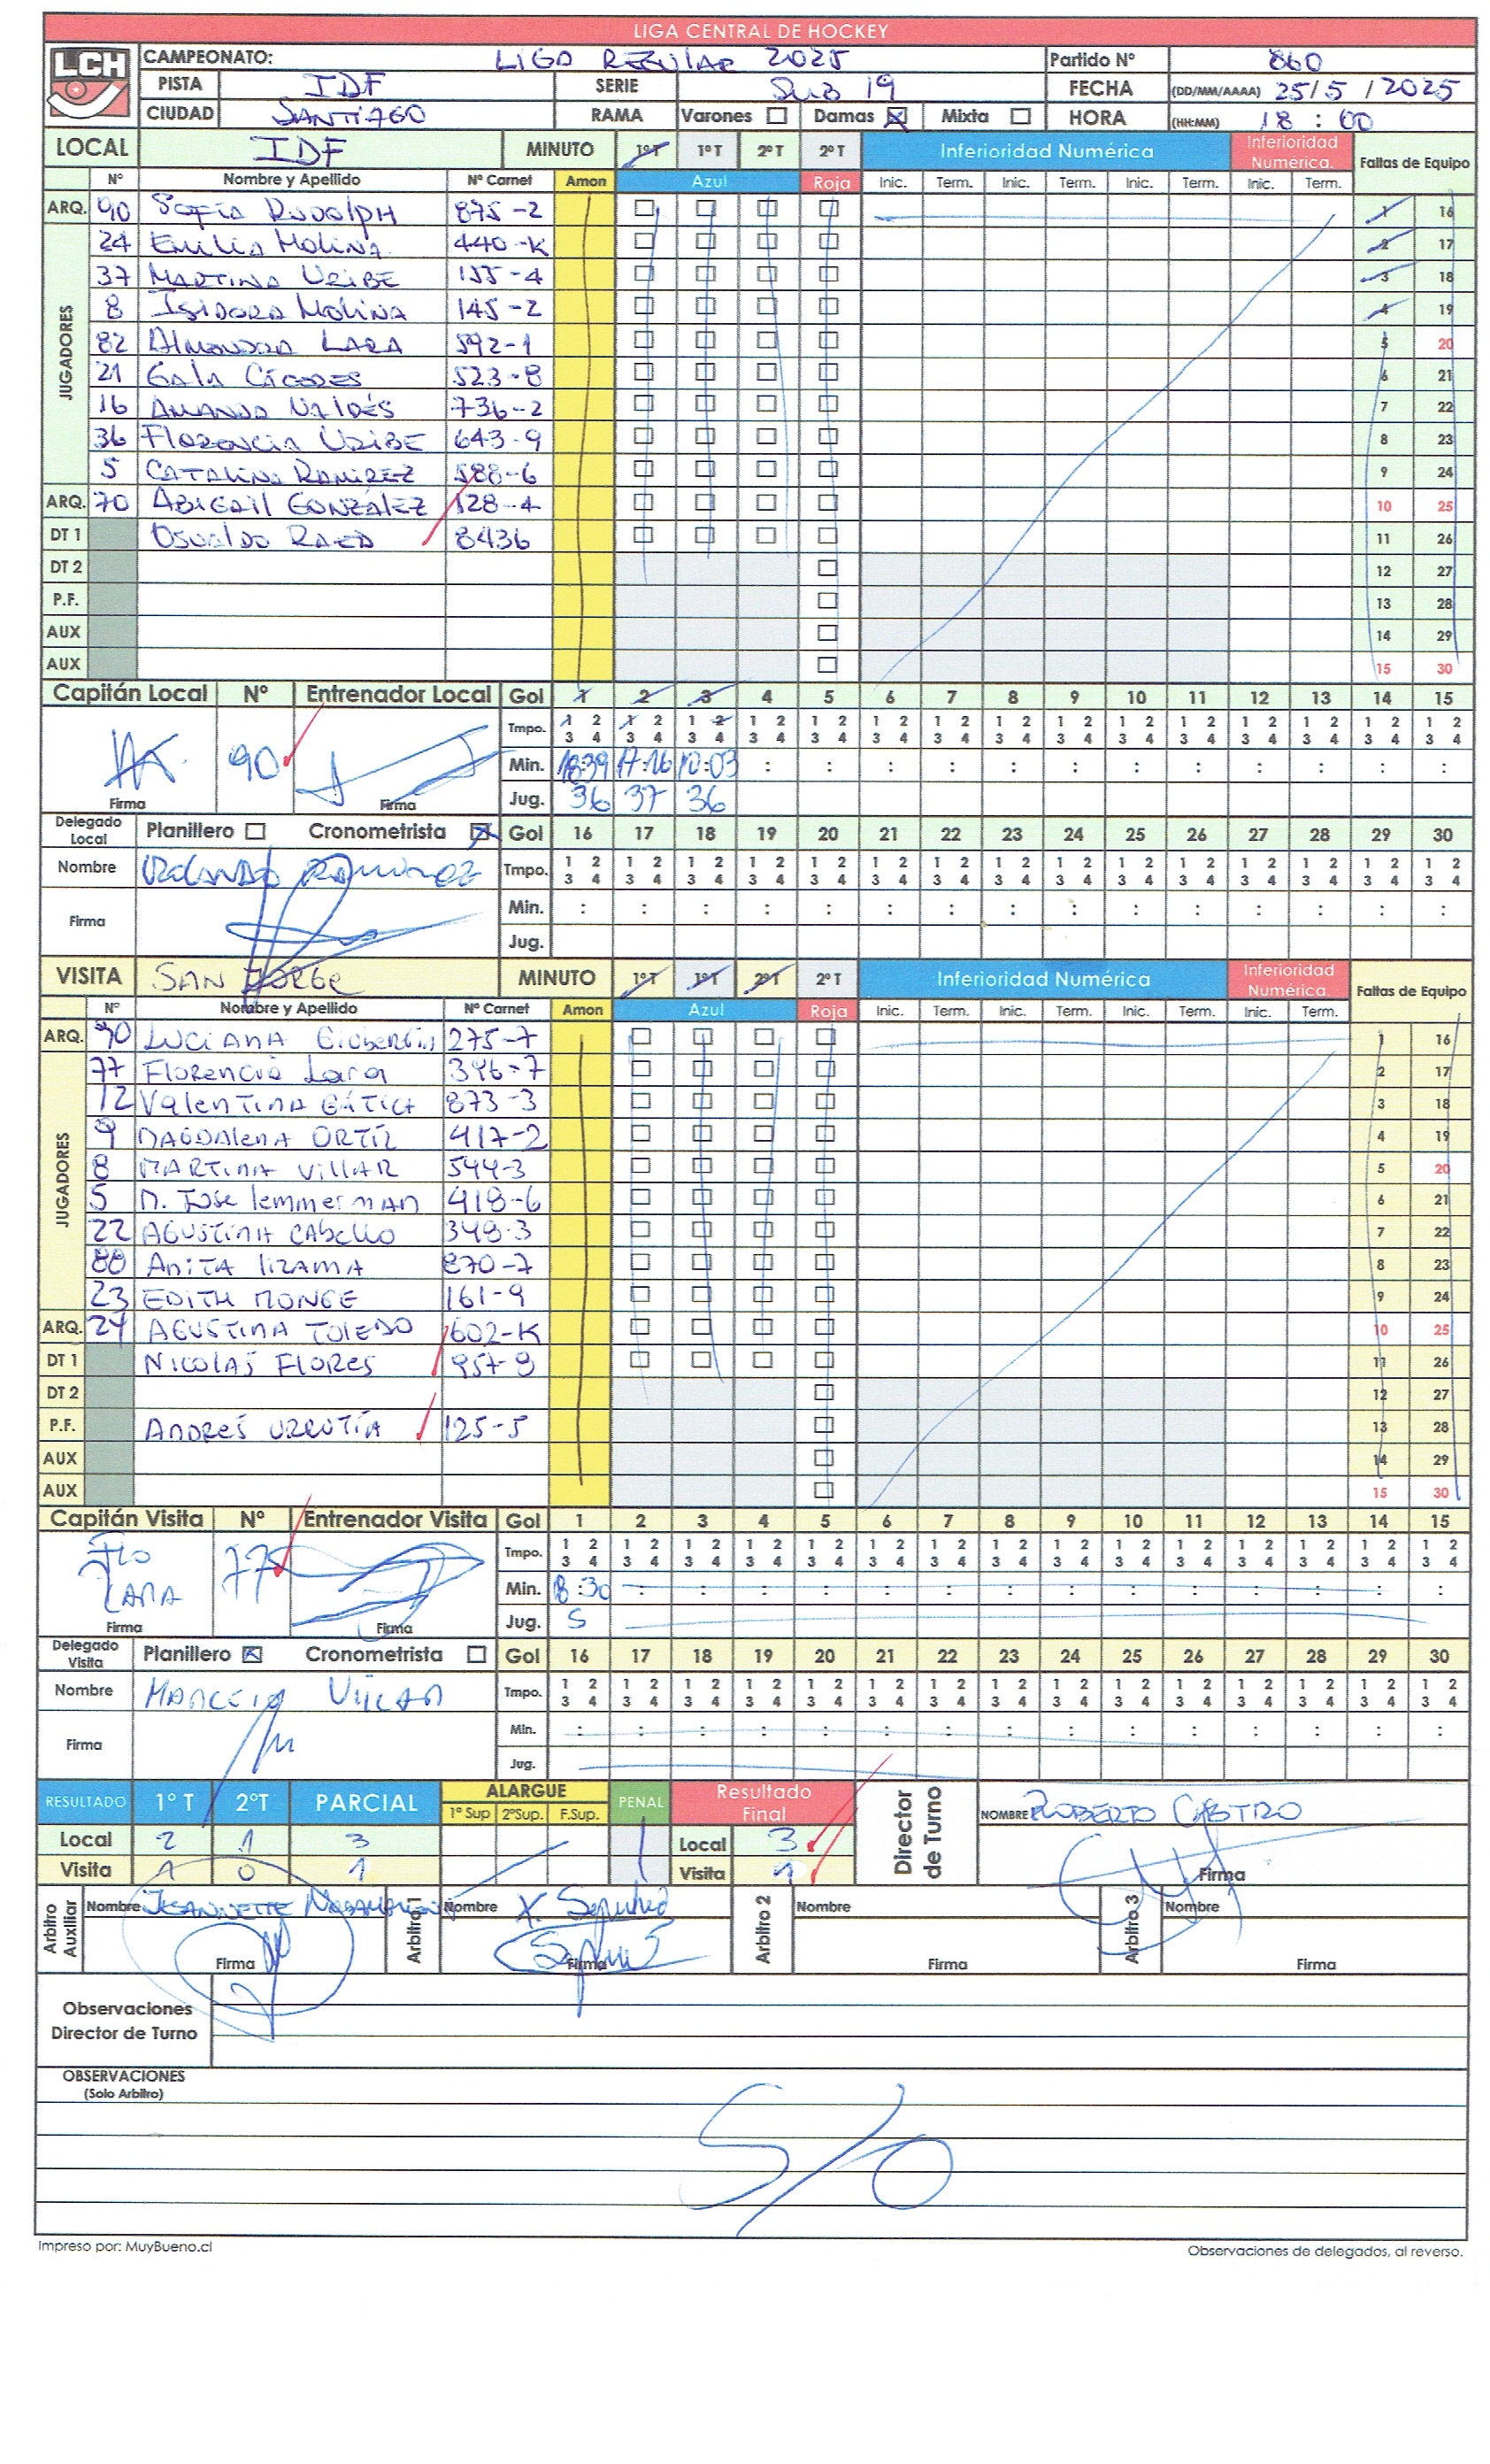 LIGA CENTRAL DE HOCKEY
LCH
CAMPEONATO: LIGA REGULAR 2025 Partido Nº 860
PISTA IDF SERIE SUB 19 FECHA (DD/MM/AAAA) 25/5/2025
CIUDAD SANTIAGO RAMA Varones Damas Mixta HORA (HH:MM) 18:00
LOCAL IDF MINUTO 1ºT 1ºT 2ºT 2ºT Inferioridad Numérica Inferioridad Numérica. Faltas de Equipo
Nº Nombre y Apellido Nº Carnet Amon Azul Roja Inic. Term. Inic. Term. Inic. Term. Inic. Term.
JUGADORES
ARQ. 90 Sofía Rudolph 875-2 1 16
24 Emilia Molina 440-K 2 17
37 Martina Uribe 155-4 3 18
8 Isidora Molina 145-2 4 19
82 Almendra Lara 592-1 5 20
21 Gala Cáceres 523-8 6 21
16 Amanda Valdés 736-2 7 22
36 Florencia Uribe 643-9 8 23
5 Catalina Ramirez 588-6 9 24
ARQ. 70 Abigail González 128-4 10 25
DT 1 Osvaldo Raed 8436 11 26
DT 2 12 27
P.F. 13 28
AUX 14 29
AUX 15 30
Capitán Local Nº Entrenador Local Gol 1 2 3 4 5 6 7 8 9 10 11 12 13 14 15
Tmpo. 1 2 1 2 1 2 1 2 1 2 1 2 1 2 1 2 1 2 1 2 1 2 1 2 1 2 1 2 1 2
3 4 3 4 3 4 3 4 3 4 3 4 3 4 3 4 3 4 3 4 3 4 3 4 3 4 3 4 3 4
90 Min. 18:39 17:16 10:03 : : : : : : : : : : : :
Firma Firma Jug. 36 37 36
Delegado Local Planillero Cronometrista Gol 16 17 18 19 20 21 22 23 24 25 26 27 28 29 30
Nombre Ramirez Tmpo. 1 2 1 2 1 2 1 2 1 2 1 2 1 2 1 2 1 2 1 2 1 2 1 2 1 2 1 2 1 2
3 4 3 4 3 4 3 4 3 4 3 4 3 4 3 4 3 4 3 4 3 4 3 4 3 4 3 4 3 4
Firma Min. : : : : : : : : : : : : : : :
Jug.
VISITA SAN JORGE MINUTO 1ºT 1ºT 2ºT 2ºT Inferioridad Numérica Inferioridad Numérica. Faltas de Equipo
Nº Nombre y Apellido Nº Carnet Amon Azul Roja Inic. Term. Inic. Term. Inic. Term. Inic. Term.
JUGADORES
ARQ. 90 LUCIANA 275-7 1 16
77 Florencia Lara 396-7 2 17
12 Valentina Gática 873-3 3 18
9 Magdalena Ortíz 417-2 4 19
8 Martina Villar 544-3 5 20
5 M. Jose Lemmerman 418-6 6 21
22 Agustina Cabello 348-3 7 22
88 Anita Lizama 870-7 8 23
23 Edith Monge 161-9 9 24
ARQ. 24 Agustina Toledo 602-K 10 25
DT 1 Nicolas Flores 957-8 11 26
DT 2 12 27
P.F. Andrés Urrutía 125-5 13 28
AUX 14 29
AUX 15 30
Capitán Visita Nº Entrenador Visita Gol 1 2 3 4 5 6 7 8 9 10 11 12 13 14 15
Flo Tmpo. 1 2 1 2 1 2 1 2 1 2 1 2 1 2 1 2 1 2 1 2 1 2 1 2 1 2 1 2 1 2
3 4 3 4 3 4 3 4 3 4 3 4 3 4 3 4 3 4 3 4 3 4 3 4 3 4 3 4 3 4
Lara 77 Min. 8:30 : : : : : : : : : : : : : :
Firma Firma Jug. 5
Delegado Visita Planillero Cronometrista Gol 16 17 18 19 20 21 22 23 24 25 26 27 28 29 30
Nombre Marcela Villar Tmpo. 1 2 1 2 1 2 1 2 1 2 1 2 1 2 1 2 1 2 1 2 1 2 1 2 1 2 1 2 1 2
3 4 3 4 3 4 3 4 3 4 3 4 3 4 3 4 3 4 3 4 3 4 3 4 3 4 3 4 3 4
Firma Min. : : : : : : : : : : : : : : :
Jug.
RESULTADO 1º T 2ºT PARCIAL ALARGUE 1º Sup 2ºSup. F.Sup. PENAL Resultado Final Director de Turno NOMBRE ROBERTO CASTRO
Local 2 1 3 Local 3
Visita 1 0 1 Visita 1 Firma
Arbitro Auxiliar Nombre Jeannette Arbitro 1 Nombre X. Sepulveda Arbitro 2 Nombre Arbitro 3 Nombre
Firma Firma Firma Firma
Observaciones
Director de Turno
OBSERVACIONES
(Solo Arbitro)
S/O
Impreso por: MuyBueno.cl Observaciones de delegados, al reverso.